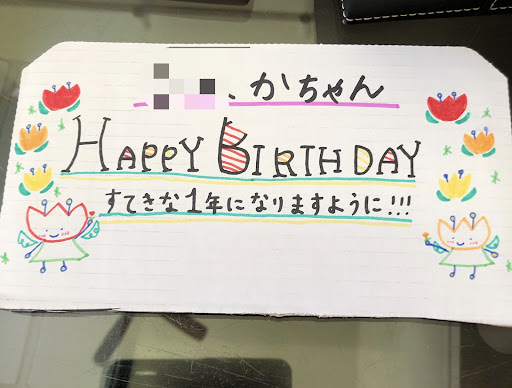 、かちゃん
HAPPY BIRTHDAY
すてきな1年になりますように!!!